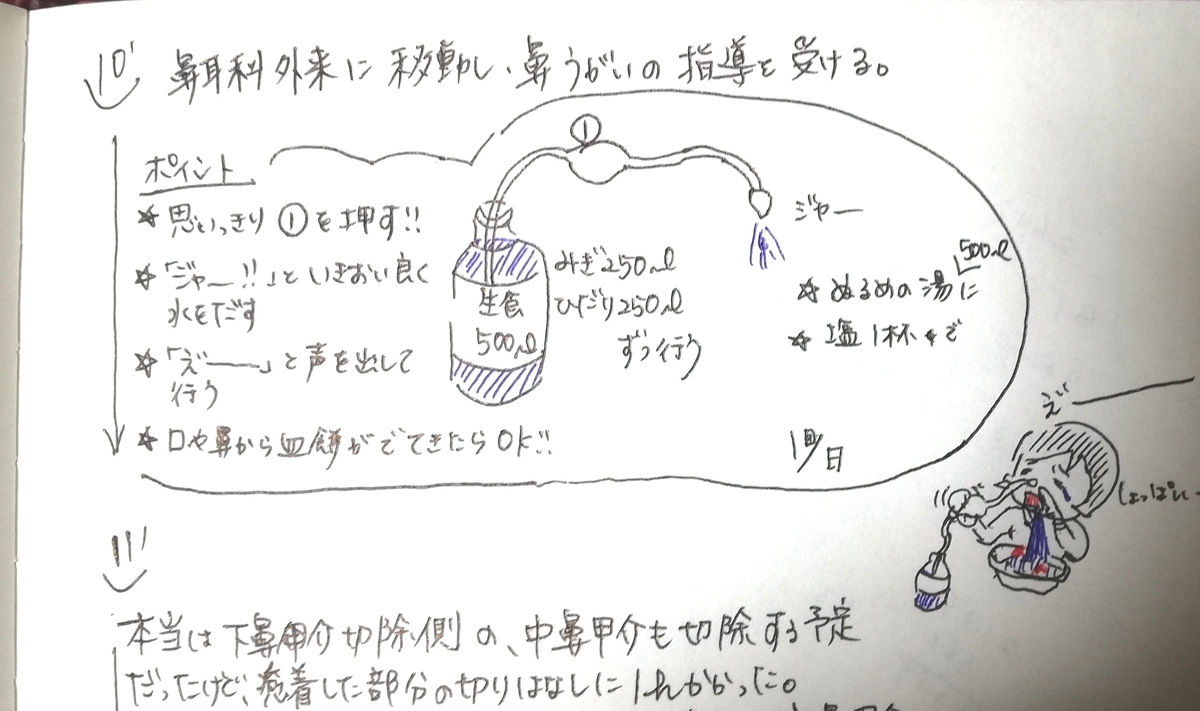 10'
鼻耳科外来に移動し、鼻うがいの指導を受ける。
ポイント
☆思いっきり①を押す!!
☆「ジャー!!」といきおい良く
水をだす
☆「えーーー」と声を出して
行う
☆口や鼻から血餅がでてきたらOK!!
①
生食
500ml
みぎ250ml
ひだり250ml
ずつ行う
ジャー
500ml
☆ぬるめの湯に
☆塩1杯
1回/日
えー
しょっぱい
11'
本当は下鼻甲介切除側の、中鼻甲介も切除する予定
だったけど、癒着した部分の切りはなしに